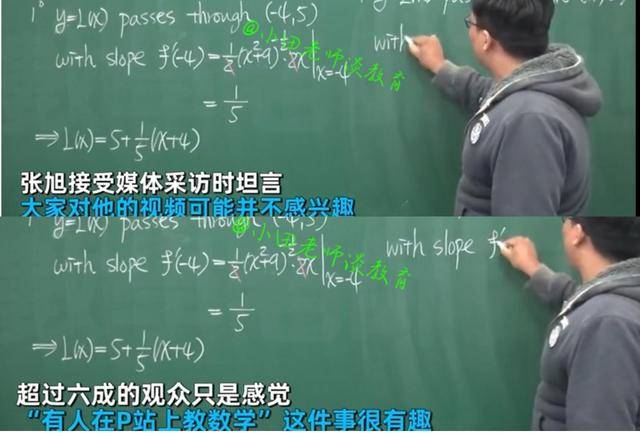 1° y=L(x) passes through (-4,5)
with slope f'(-4)=1/2(x²+9)·2x|x=-4
= 1/5
⇒L(x)=5+1/5(x+4)
with
@小田老师谈教育
张旭接受媒体采访时坦言
大家对他的视频可能并不感兴趣
y=L(x) passes through (-4,5)
with slope f'(-4)=1/2(x²+9)·2x|x=-4
= 1/5
⇒L(x)=5+1/5(x+4)
with slope f'
@小田老师谈教育
超过六成的观众只是感觉
“有人在P站上教数学”这件事很有趣